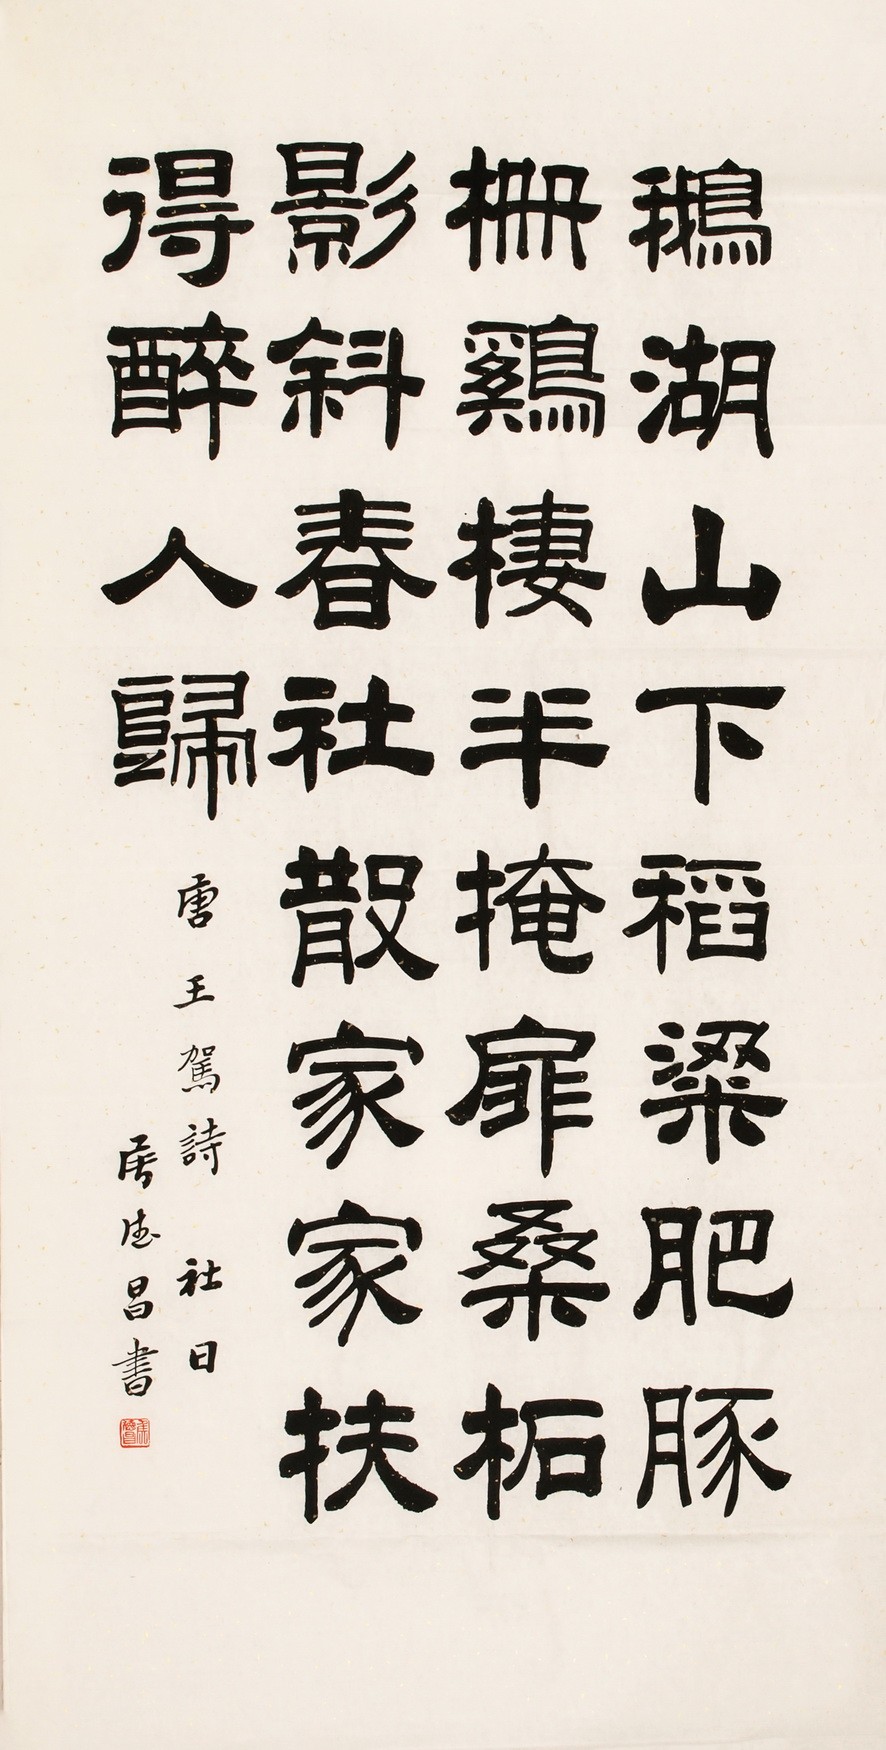 鵝湖山下稻粱肥豚
柵鷄棲半掩扉桑柘
影斜春社散家家扶
得醉人歸
唐王駕詩 社日
德昌書